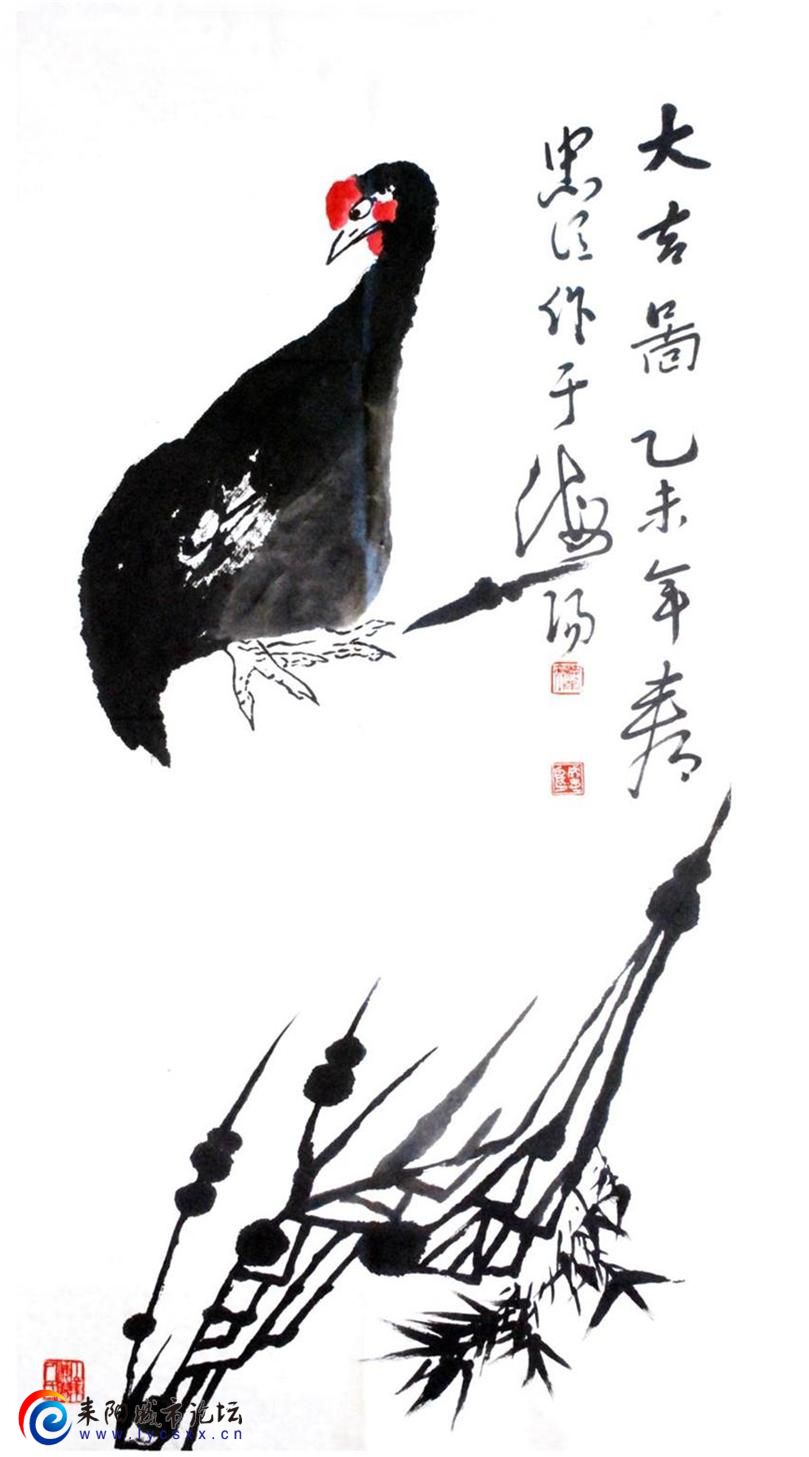 大吉啚乙未年春
作于海陽
耒阳城市论坛
www.lycsxx.cn